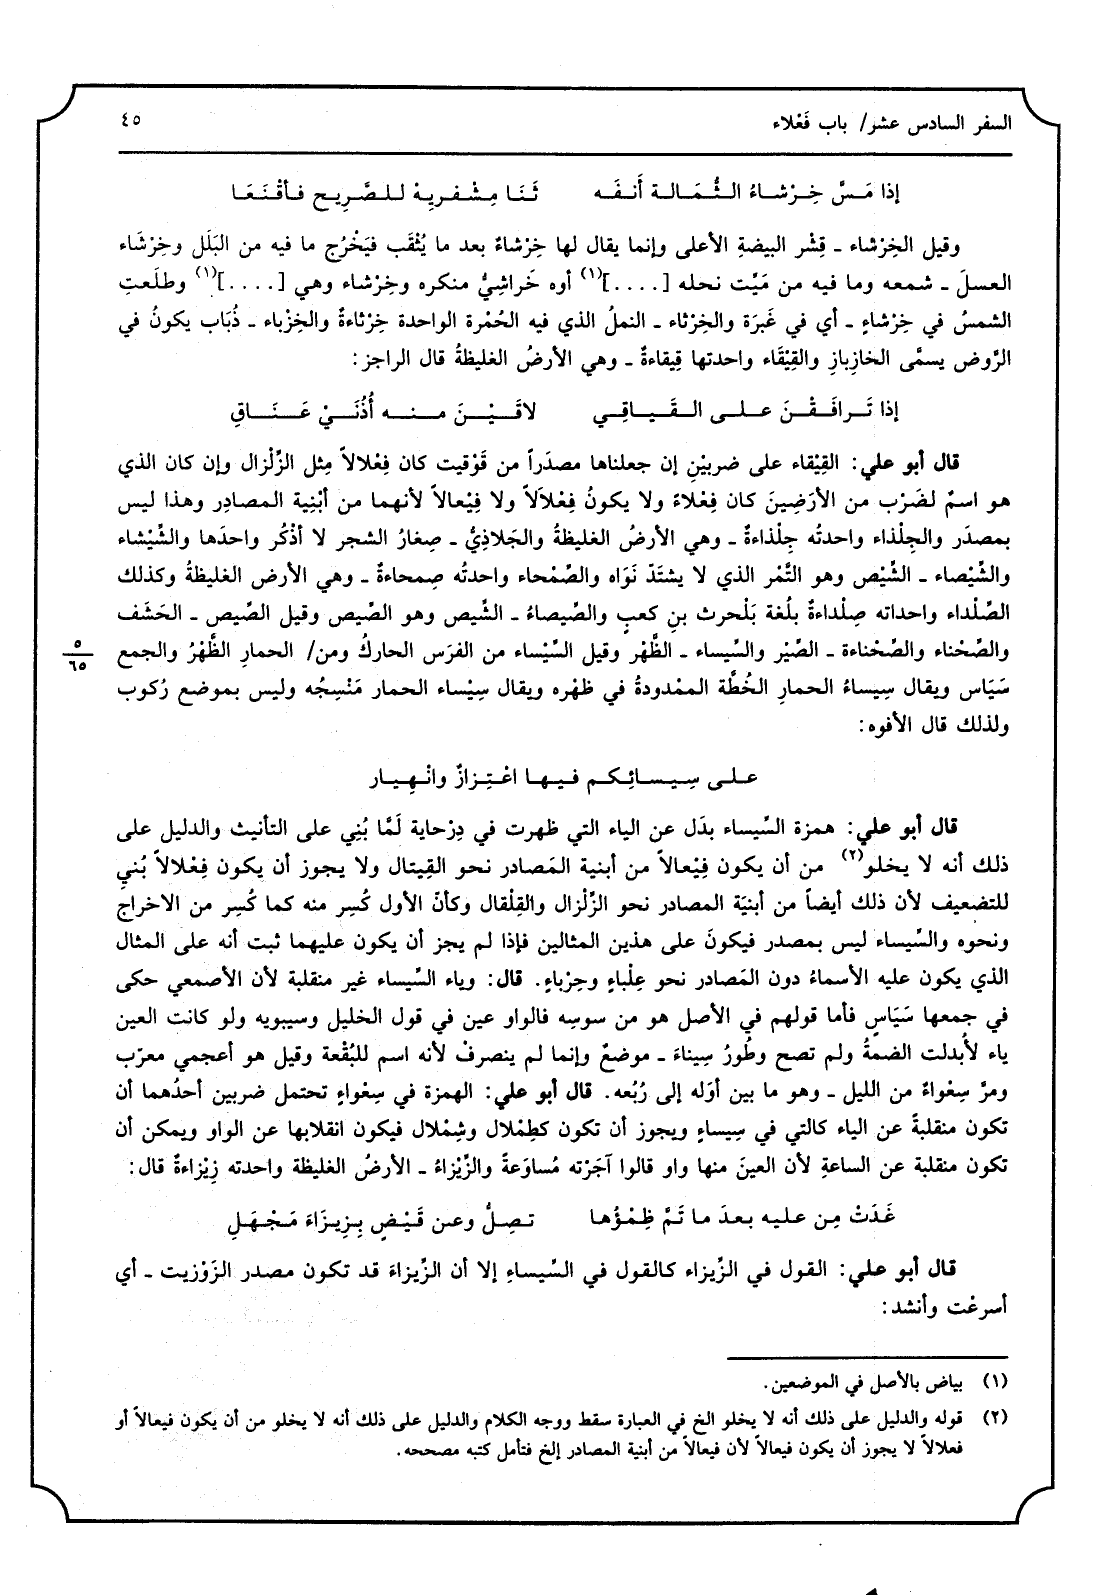 السفر السادس عشر/ باب فَعْلاء
٤٥
إذا مَسَّ خِرْشاءُ الثُّمالة أَنفَه ثَنَا مِشْفريِهْ للصَّرِيح فأقْنَعَا
وقيل الخِرْشاء ـ قِشْر البيضةِ الأعلى وإنما يقال لها خِرْشاءٌ بعد ما يُثْقَب فيَخْرُج ما فيه من البَلَل وخِرْشَاء
العسلَ ـ شمعه وما فيه من مَيِّت نحله [....](١) أوه خَراشِيُّ منكره وخِرْشاء وهي [....](١) وطلَعتِ
الشمسُ في خِرْشاءٍ ـ أي في غَبرَة والخِرْثاء ـ النملُ الذي فيه الحُمْرة الواحدة خِرْثاءةٌ والخِزْباء ـ ذُبَاب يكونُ في
الرَّوض يسمَّى الخازِبازِ والقِيْقَاء واحدتها قِيقاءةٌ ـ وهي الأرضُ الغليظةُ قال الراجز:
إذا تَرافَقْنَ على القَياقِي لاقَيْنَ منه أُذُنَيْ عَنَاقِ
قال أبو علي: القِيْقاء على ضربيْنِ إن جعلناها مصدَراً من قَوْقيت كان فِعْلالاً مِثل الزِّلْزال وإن كان الذي
هو اسمٌ لضَرْب من الأرَضِينَ كان فِعْلاءً ولا يكونُ فِعْلاَلاً ولا فِيْعالاً لأنهما من أبْنِية المصادِر وهذا ليس
بمصدَر والجِلْذاء واحدتُه جِلْذاءةٌ ـ وهي الأرضُ الغليظةُ والجَلاذِيُّ ـ صِغارُ الشجر لا أذْكُر واحدَها والشِّيْشاء
والشِّيْصاء ـ الشِّيْص وهو التَّمْر الذي لا يشتَدّ نَوَاه والصِّمْحاء واحدتُه صِمحاءةٌ ـ وهي الأرض الغليظةُ وكذلك
الصِّلْداء واحداته صِلْداءةٌ بلُغة بَلْحرث بنِ كعبٍ والصِّيصاءُ ـ الشِّيص وهو الصِّيص وقيل الصِّيص ـ الحَشَف
والصِّحْناء والصِّحْناءة ـ الصِّيْر والسِّيساء ـ الظَّهْر وقيل السِّيْساء من الفرَس الحاركُ ومن/ الحمارِ الظَّهْرُ والجمع
٥
٦٥
سَيَاس ويقال سِيساءُ الحمارِ الخُطَّة الممْدودةُ في ظهْره ويقال سِيْساء الحمار مَنْسِجُه وليس بموضع رُكوب
ولذلك قال الأفوه:
على سِيسائِكم فيها اغْتِزازٌ وانْهِيار
قال أبو علي: همزة السِّيساء بدَل عن الياء التي ظهرت في دِرْحاية لَمَّا بُنِي على التأنيث والدليل على
ذلك أنه لا يخلو(٢) من أن يكون فِيْعالاً من أبنية المَصادر نحو القِيتال ولا يجوز أن يكون فِعْلالاً بُنيِ
للتضعيف لأن ذلك أيضاً من أبنيَة المصادر نحو الزِّلْزال والقِلْقال وكأنّ الأول كُسِر منه كما كُسِر من الاخراج
ونحوه والسِّيساء ليس بمصدر فيكونَ على هذين المثالين فإذا لم يجز أن يكون عليهما ثبت أنه على المثال
الذي يكون عليه الأسماءُ دون المَصادر نحو عِلْباءٍ وحِرْباءٍ. قال: وياء السِّيساء غير منقلبة لأن الأصمعي حكى
في جمعها سَيَاسٍ فأما قولهم في الأصل هو من سوسِه فالواو عين في قول الخليل وسيبويه ولو كانت العين
ياء لأُبدلت الضمةُ ولم تصح وطُورُ سِيناءَ ـ موضعٌ وإنما لم ينصرفْ لأنه اسم للبُقْعة وقيل هو أعجمي معرّب
ومرَّ سِعْواءٌ من الليل ـ وهو ما بين أوَله إلى رُبُعه. قال أبو علي: الهمزة في سِعْواءٍ تحتمل ضربين أحدُهما أن
تكون منقلبةً عن الياء كالتي في سِيساءٍ ويجوز أن تكون كطِمْلال وشِمْلال فيكون انقلابها عن الواو ويمكن أن
تكون منقلبة عن الساعةِ لأن العينَ منها واو قالوا آجَرْته مُساوَعةً والزِّيْزاءُ ـ الأرضُ الغليظة واحدته زِيْزاءةٌ قال:
غَدَتْ مِن عليه بعدَ ما تَمَّ ظِمْؤُها تصِلُّ وعن قَيْضٍ بِزِيزَاءَ مَجْهَلِ
قال أبو علي: القول في الزِّيزاء كالقول في السِّيساءِ إلا أن الزِّيزاءَ قد تكون مصدر الزَوْزيت ـ أي
أسرعْت وأنشد:
(١) بياض بالأصل في الموضعين.
(٢) قوله والدليل على ذلك أنه لا يخلو الخ في العبارة سقط ووجه الكلام والدليل على ذلك أنه لا يخلو من أن يكون فيعالاً أو
فعلالاً لا يجوز أن يكون فيعالاً لأن فيعالاً من أبنية المصادر إلخ فتأمل كتبه مصححه.